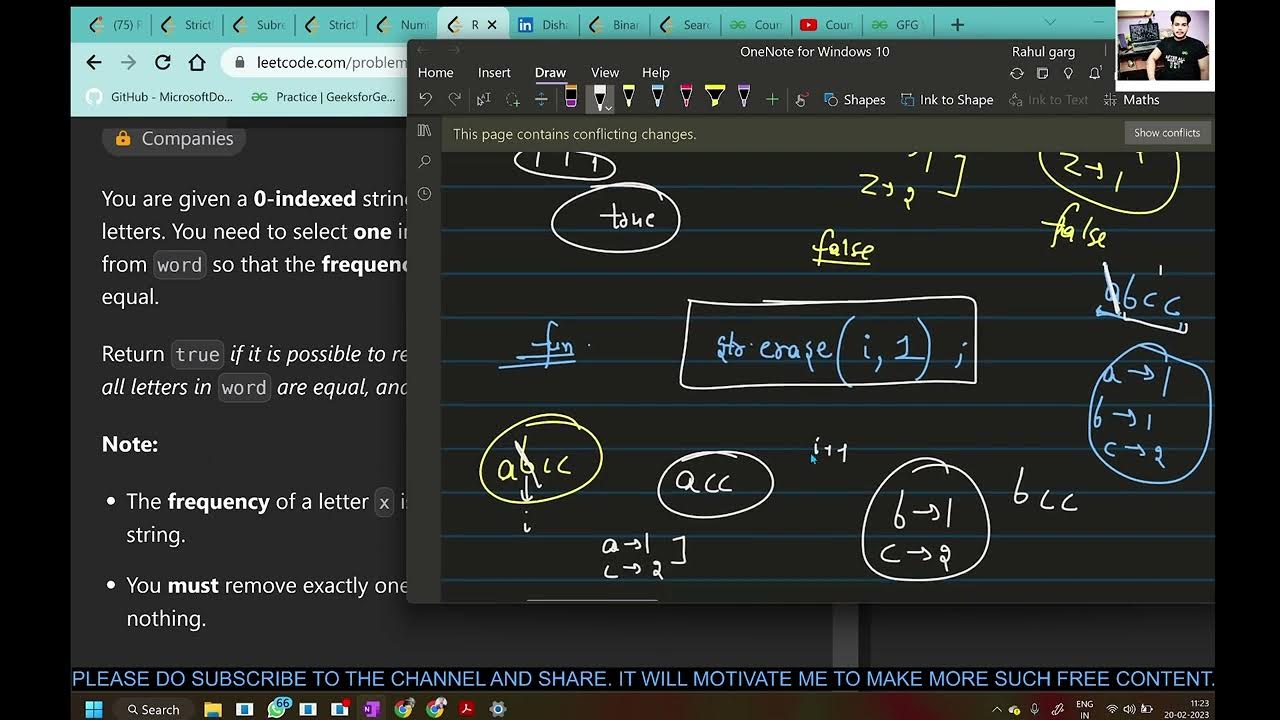 (75) F
Strict
Subre
Strict
Num
R
Disha
Binar
Searc
Coun
Coun
GFG
leetcode.com/problem
GitHub - MicrosoftDo...
Practice | GeeksforGe...
OneNote for Windows 10
Rahul garg
Home
Insert
Draw
View
Help
Shapes
Ink to Shape
Ink to Text
Maths
This page contains conflicting changes.
Show conflicts
Companies
You are given a 0-indexed string
letters. You need to select one in
from word so that the frequenc
equal.
Return true if it is possible to re
all letters in word are equal, and
Note:
• The frequency of a letter x is
string.
• You must remove exactly one
nothing.
1 1 1
true
2→2
false
2→1
false
abcc
fun
str.erase(i,1);
a→1
b→1
c→2
abcc
i
acc
a→1
c→2
i++
b→1
c→2
bcc
PLEASE DO SUBSCRIBE TO THE CHANNEL AND SHARE. IT WILL MOTIVATE ME TO MAKE MORE SUCH FREE CONTENT.
Search
66
ENG
IN
11:23
20-02-2023